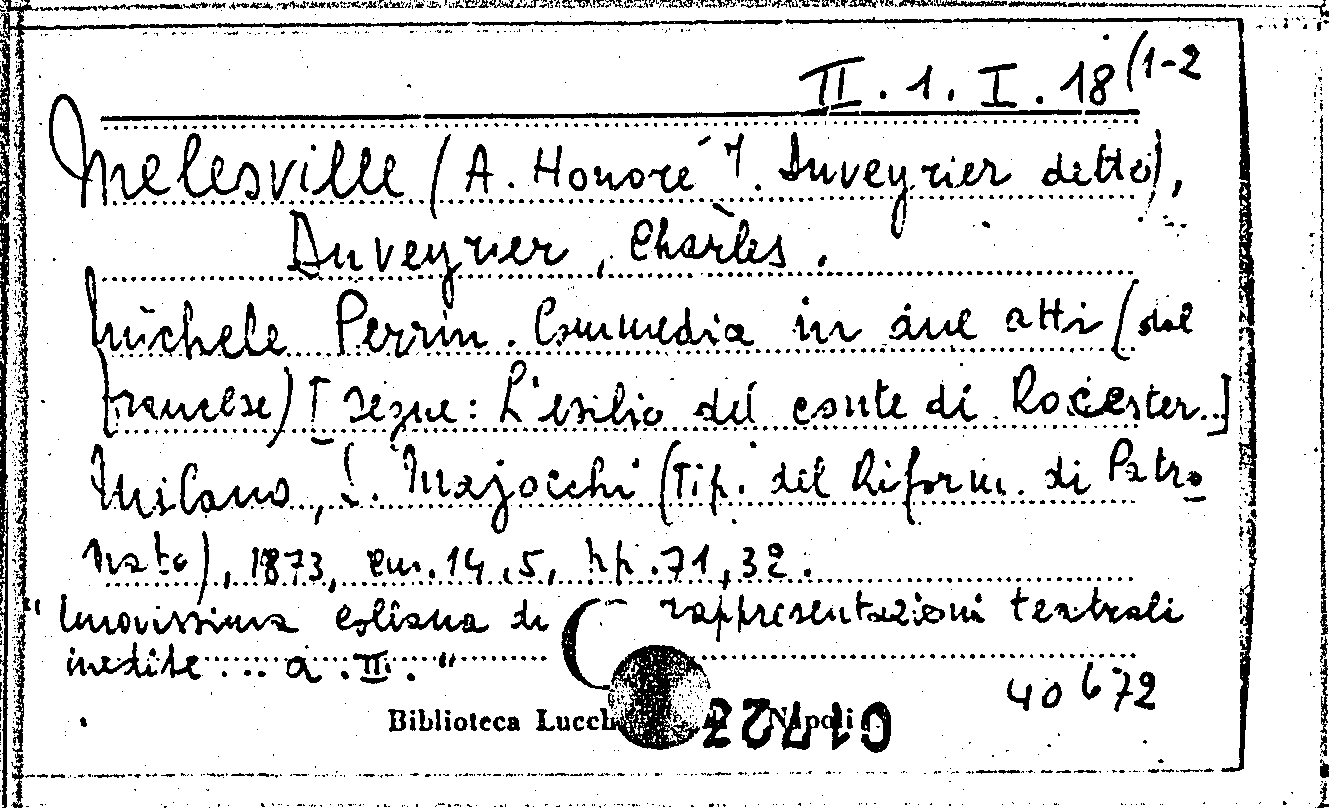 II. 1. I. 18 (1-2
Melesville (A. Honoré J. Duveyrier detto),
Duveyrier, Charles.
Michele Perrin. Commedia in due atti (dal
francese) [segue: L'esilio del conte di Rocester.]
Milano, L. Majocchi (Tip. del Riform. di Patro
nato), 1873, cm. 14,5, pp. 71, 32.
"Nuovissima collana di rappresentazioni teatrali
inedite ... a. II."
40672
Biblioteca Lucch Napoli